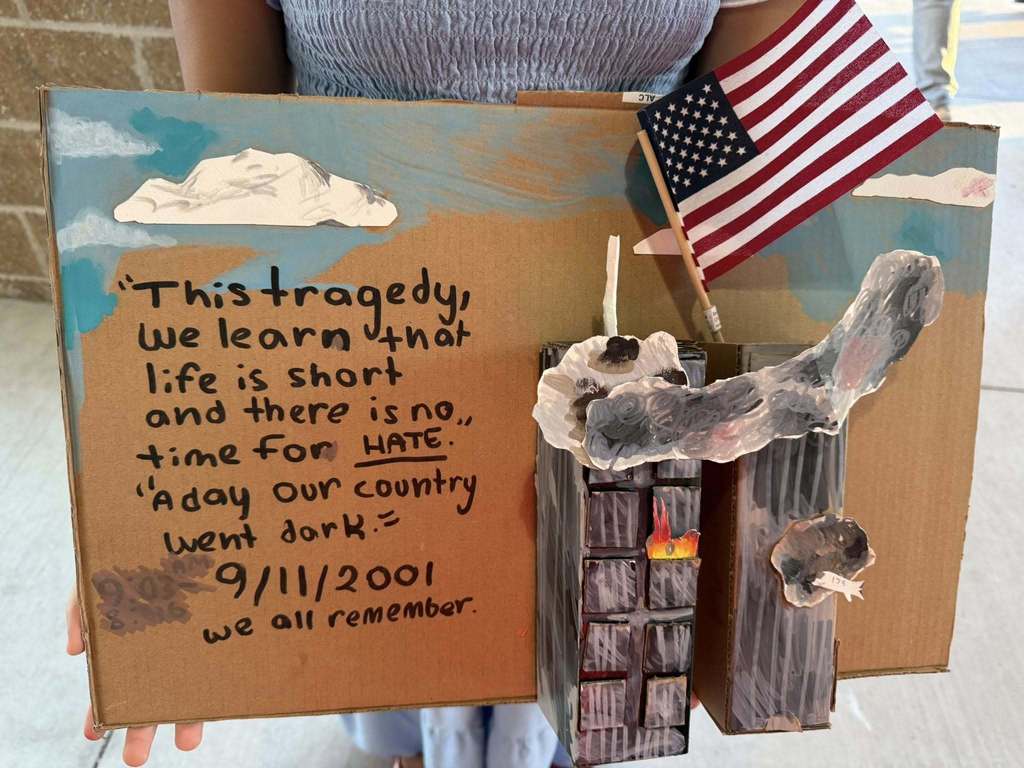 ALC
"This tragedy,
we learn that
life is short
and there is no
time for HATE."
"A day our country
went dark."
9/11/2001
we all remember.
175